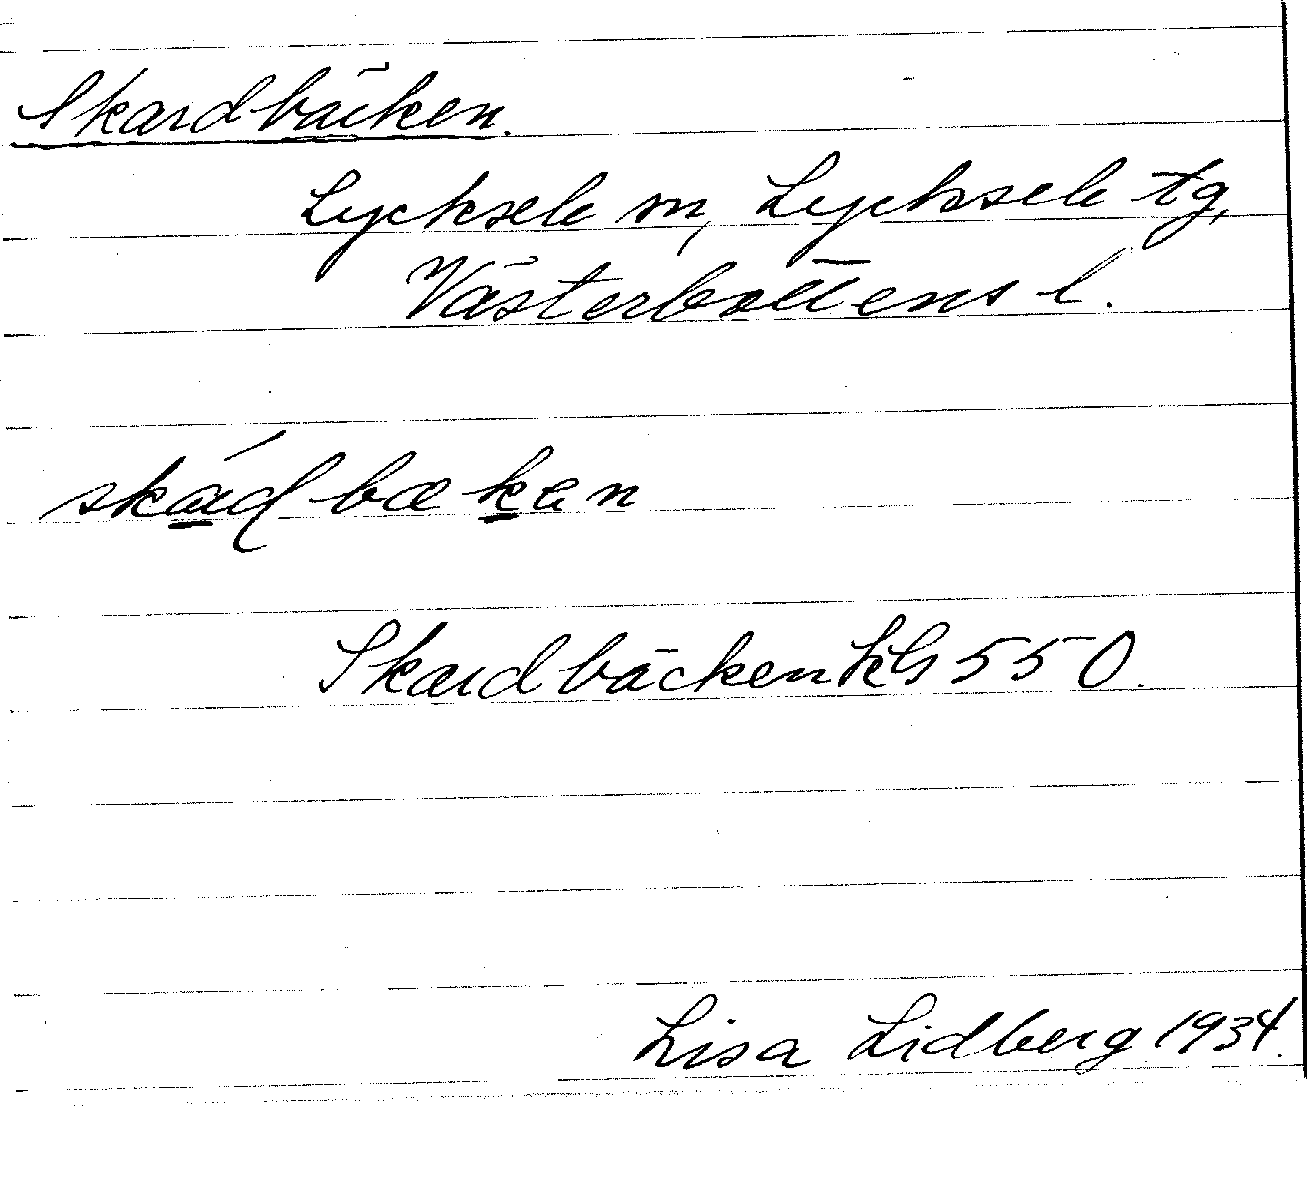 Skardbäcken.
Lycksele sn, Lycksele tg,
Västerbottens l.
skáɖbækan
Skardbäcken KG 550.
Lisa Lidberg 1934.